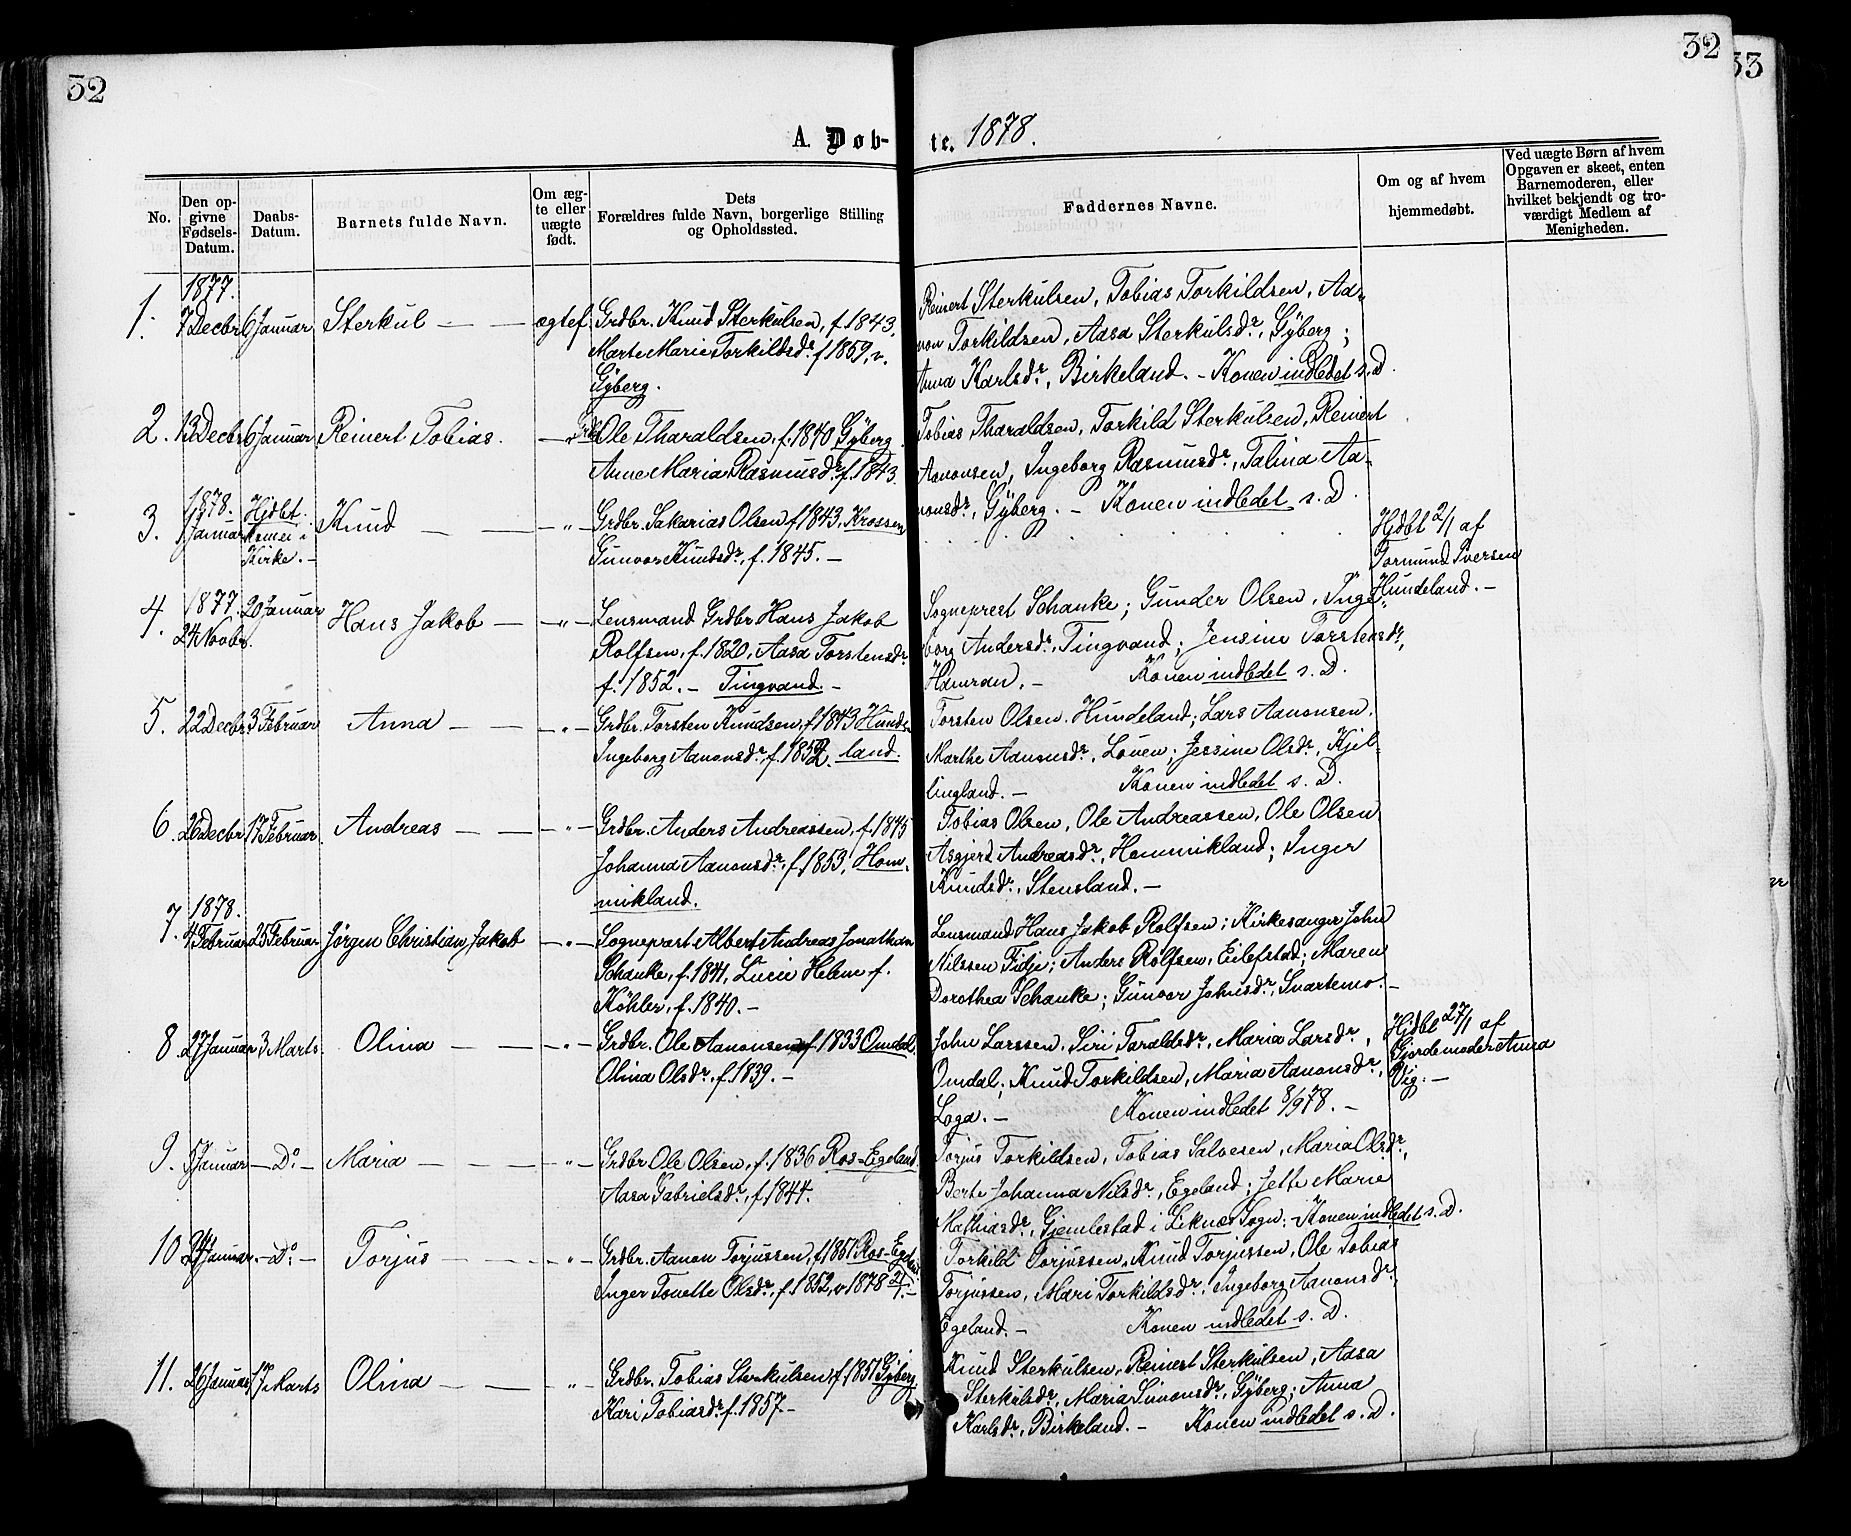 32
32
33
A. Døb-
te. 1878.
No.
Den op-
givne
Fødsels-
Datum.
Daabs-
Datum.
Barnets fulde Navn.
Om æg-
te eller
uægte
født.
Dets
Forældres fulde Navn, borgerlige Stilling
og Opholdssted.
Faddernes Navne.
Om og af hvem
hjemmedøbt.
Ved uægte Børn af hvem
Opgaven er skeet, enten
Barnemoderen, eller
hvilket bekjendt og tro-
værdigt Medlem af
Menigheden.
1877.
1. 7 Decbr 6 Januar Sterkul — — ægtef. Grdbr. Knud Sterkulsen, f. 1843,
Marte Marie Torkildsdr. f 1859, v.
Gyberg.
Reinert Sterkulsen, Tobias Torkildsen, Aa-
non Torkildsen, Aasa Sterkulsdr, Gyberg;
Anna Karlsdr, Birkeland. — Konen indledet s. D.
2. 13 Decbr 6 Januar Reinert Tobias. — Ole Tharaldsen, f. 1840 Gyberg.
Anne Maria Rasmusdr. f. 1843.
Tobias Tharaldsen, Torkild Sterkulsen, Reinert
Aanonsen, Ingeborg Rasmusdr, Talina Aa-
nonsdr, Gyberg. — Konen indledet s. D.
1878. Hjdbt.
3. 1 Januar Kun ei i Knud — — — „ — Grdbr. Sakarias Olsen f 1843, Krossen
Kirke. — Gunvor Knudsdr, f. 1845. —
Hjdbt 2/1 af
Tormund Iversen
Hundeland. —
4. 1877. 20 Januar Hans Jakob — — „ — Lensmand Grdbr Hans Jakob
24 Novbr. Rolfsen, f. 1820, Aasa Torstensdr
f. 1852. — Tingvand. —
Sogneprest Schanke; Gunder Olsen, Inge-
borg Andersdr, Tingvand; Jensine Torstensdr,
Hamran. — Konen indledet s. D.
5. 22 Decbr 3 Februar Anna — — — „ — Grdbr. Torsten Knudsen, f 1843 Hunde-
Ingeborg Aanonsdr, f. 1852. land.
Torsten Olsen, Hundeland; Lars Aanonsen,
Marthe Aanonsdr, Løuen; Jessine Olsdr, Kjel-
lingland. — Konen indledet s. D.
6. 26 Decbr 17 Februar Andreas — — — „ — Grdbr. Anders Andreassen, f. 1845
Johanna Aanonsdr, f. 1853, Hom-
mikland.
Tobias Olsen, Ole Andreassen, Ole Olsen
Asgjerd Andreasdr, Hommikland; Inger
Knudsdr, Stensland. —
1878.
7. 4 Februar 25 Februar Jörgen Christian Jakob — „ — Sogneprest Albert Andreas Jonathan
Schanke, f. 1841, Lucie Helene f.
Köhler, f. 1840. —
Lensmand Hans Jakob Rolfsen; Kirkesanger John
Nilssen Fidje; Anders Rolfsen, Eilefstad; Maren
Dorothea Schanke; Gunvor Johnsdr, Svartemo. —
8. 27 Januar 3 Marts. Olina — — — „ — Grdbr. Ole Aanonsen f 1833 Omdal
Olina Olsdr, f. 1839. —
John Larssen, Siri Taraldsdr, Maria Larsdr,
Omdal; Knud Torkildsen, Maria Aanonsdr,
Loga. — Konen indledet 8/9 78. —
Hjdbt 27/1 af
Gjordemoder Anna
Vig. —
9. 5 Januar — Do. — Maria — — — „ — Grdbr Ole Olsen, f. 1836 Ros-Egeland
Aasa Gabrielsdr, f. 1844.
Torjus Torkildsen, Tobias Salvesen, Maria Olsdr,
Berte Johanna Nilsdr, Egeland; Jette Marie
Mathiasdr, Gjemlestad i Liknes Sogn. — Konen indledet s. D.
10 24 Januar. — Do. — Torjus — — — „ — Grdbr. Aanon Torjussen, f 1851 Ros-Egeland
Inger Tonette Olsdr, f. 1852, v 1878
Torkild Torjussen, Knud Torjussen, Ole Tobias
Torjussen, Mari Torkildsdr, Ingeborg Aanonsdr,
Egeland. — Konen indledet s. D.
11. 26 Januar 17 Marts Olina — — „ — Grdbr. Tobias Sterkulsen, f 1851 Gyberg,
Kari Tobiasdr. f. 1857. —
Knud Sterkulsen, Reinert Sterkulsen, Aasa
Sterkulsdr, Maria Simonsdr, Gyberg; Anna
Karlsdr, Birkeland. — Konen indledet s. D.